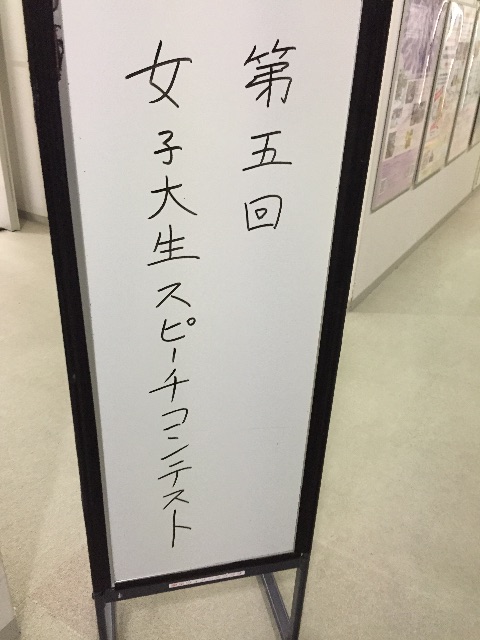 第五回
女子大生スピーチコンテスト